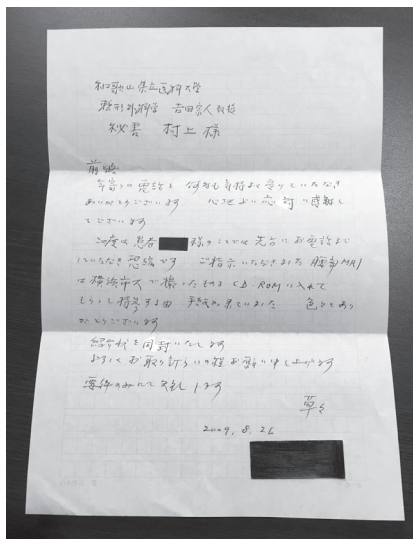 和歌山県立医科大学
整形外科学 吉田宗人教授
秘書 村上様
前略
年寄りの電話を何度も気持よく受けていただき
ありがとうございます 心地よい応対に感謝し
てございます
この度は患者 様のことでは先生にお電話まで
していただき恐縮です ご指示いただきました腰部MRI
は横浜市大で撮ったものをCD-ROMに入れて
もらうし持参する由 手紙が来ていました 色々とあり
がとうございます
紹介状を同封いたします
よろしくお取り計らいの程お願い申し上げます
要件のみにて失礼します
草々
2009.8.26